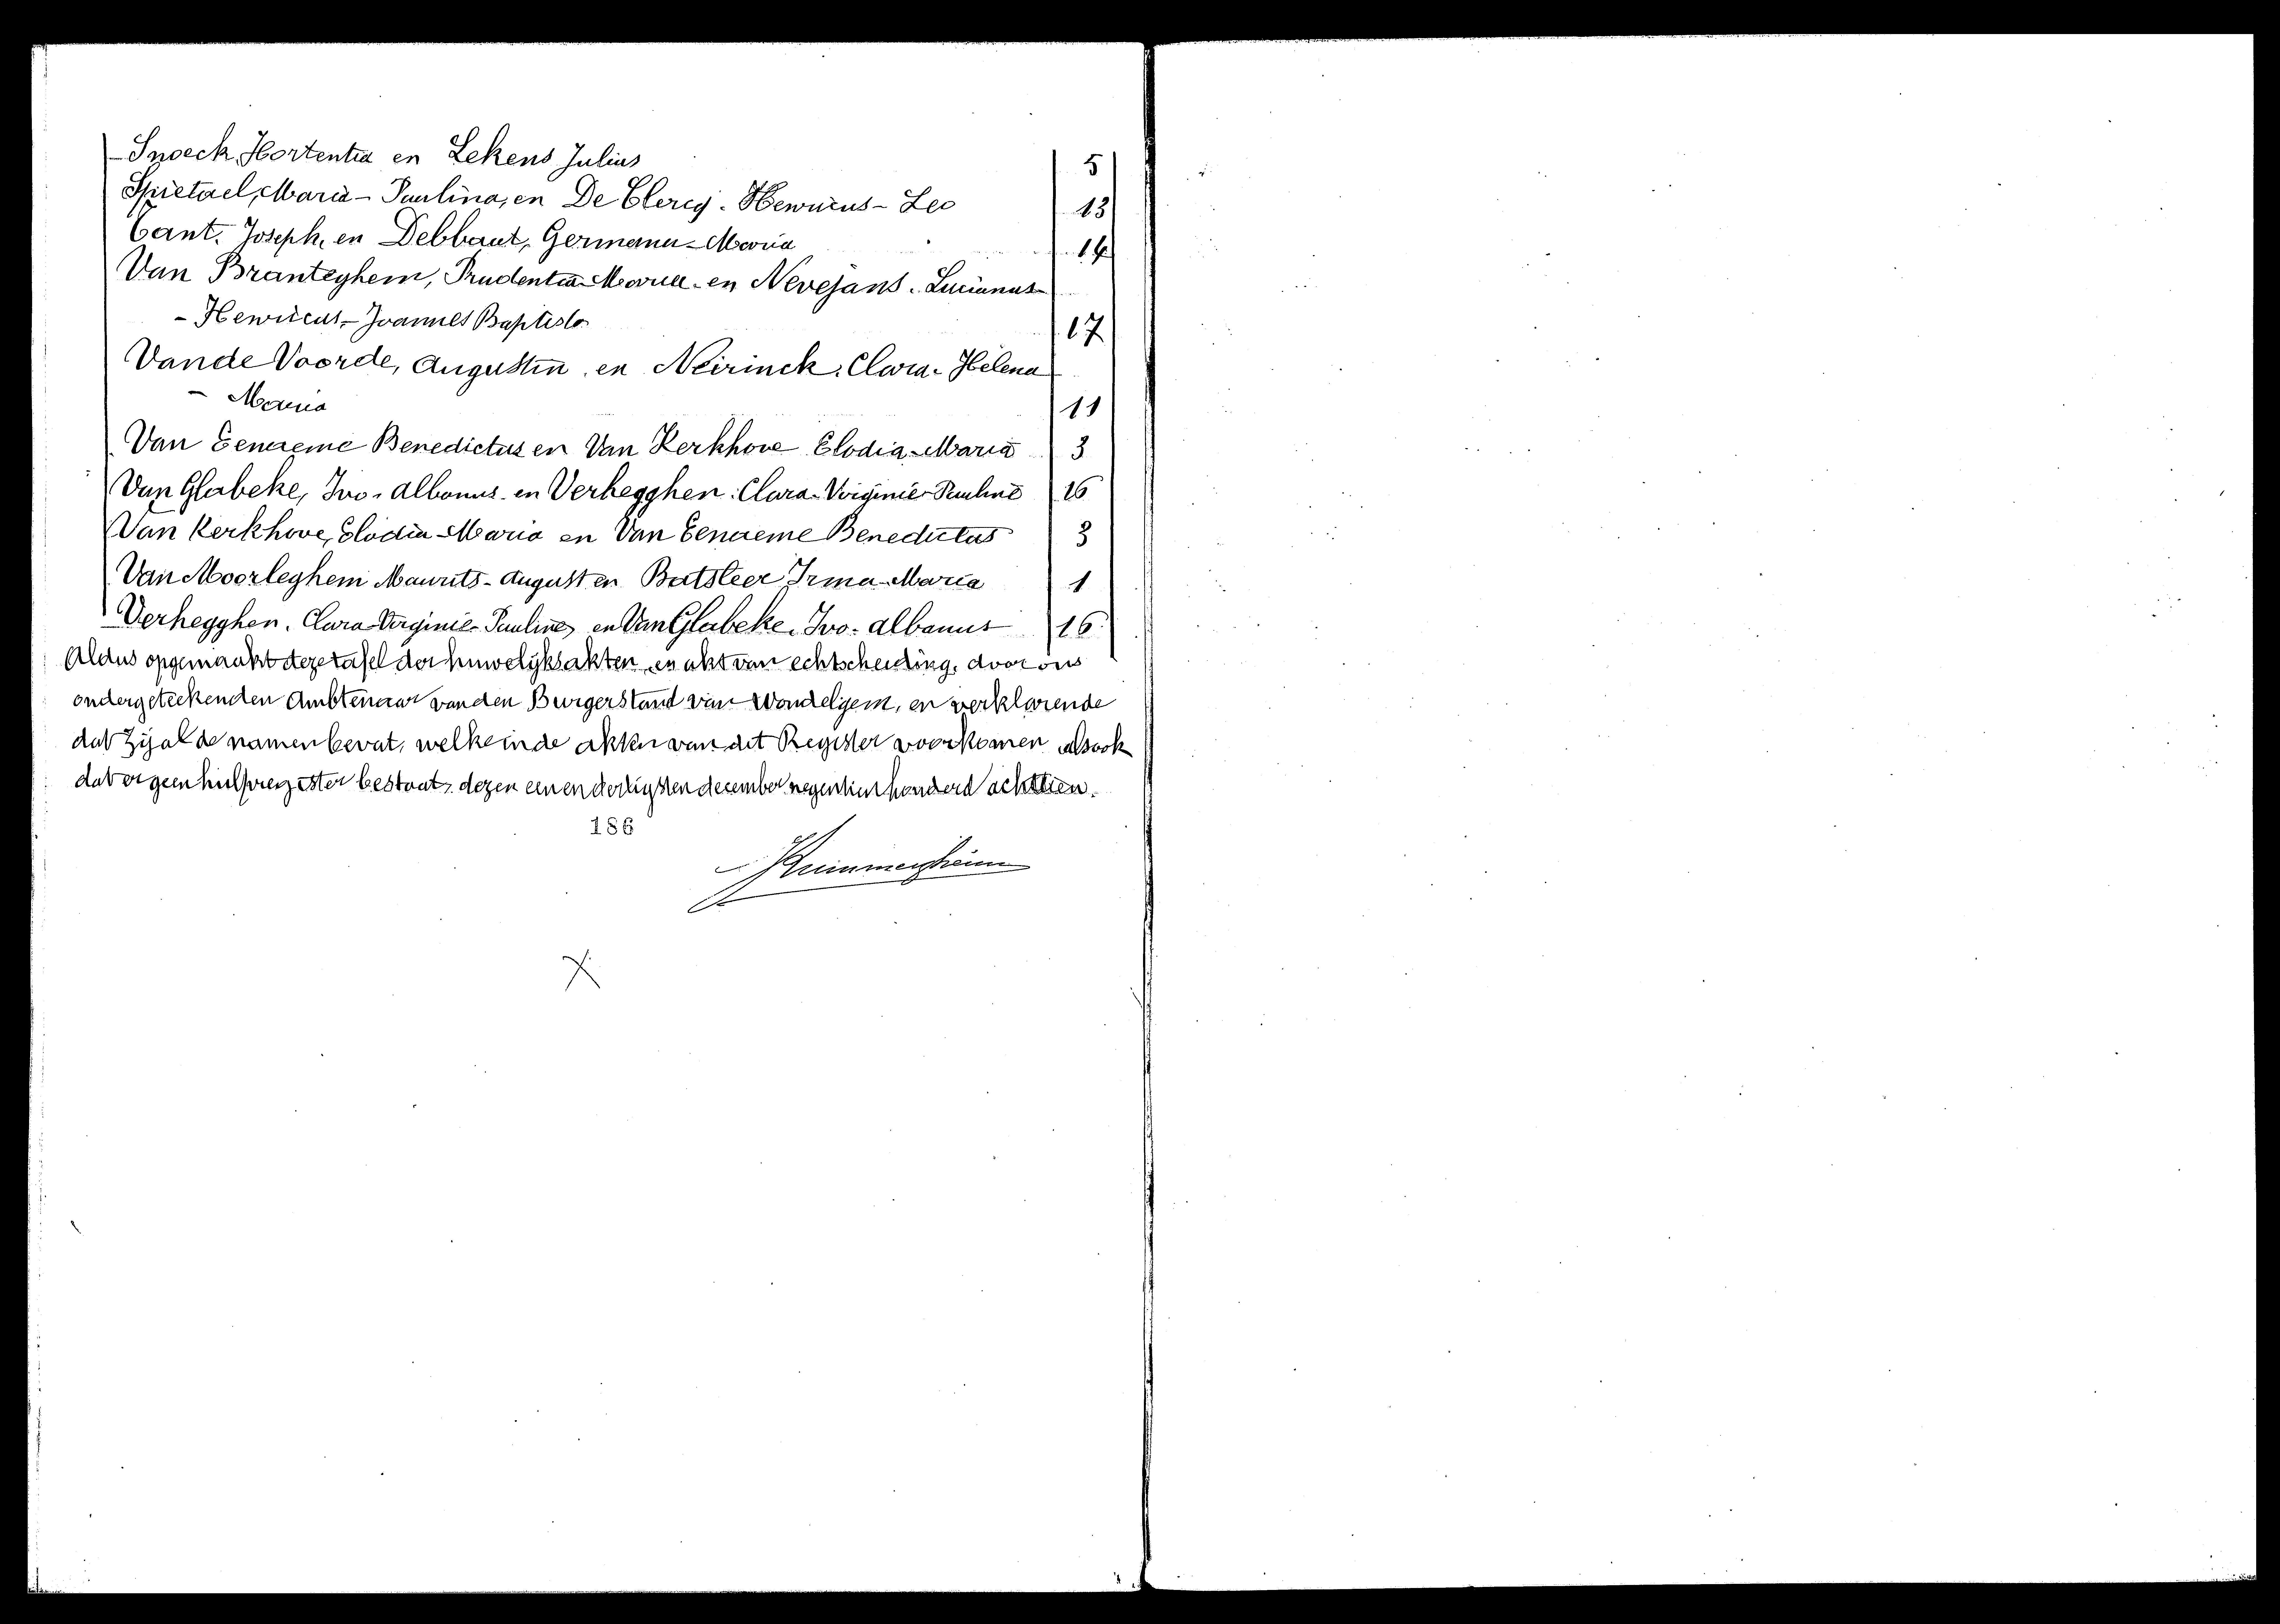 Snoeck Hortentia en Lekens Julius 5
Spietael, Maria-Paulina, en De Clercq. Henricus-Leo 13
Cant. Joseph, en Debbaut, Germana-Maria 14
Van Branteghem, Prudentia-Maria-en Nevejans. Lucianus
- Henricus-Joannes Baptista 17
Vande Voorde, Augustin en Neirinck, Clara-Helena
- Maria 11
Van Eenaeme Benedictus en Van Kerkhove Elodia-Maria 3
Van Glabeke, Ivo-Albanus en Verhegghen. Clara-Virginie-Pauline 16
Van Kerkhove, Elodia-Maria en Van Eenaeme Benedictus 3
Van Moorleghem Maurits-August en Batsleer Irma-Maria 1
Verhegghen. Clara-Virginie-Pauline, en Van Glabeke. Ivo-Albanus 16
Aldus opgemaakt deze tafel der huwelijksakten, en akt van echtscheiding, door ons
ondergeteekenden Ambtenaar van den Burgerstand van Wondelgem, en verklarende
dat zij al de namen bevat, welke in de akten van dit Register voorkomen alsook
dat er geen hulpregister bestaat, dezen eenendertigsten december negentienhonderd achttien.
186